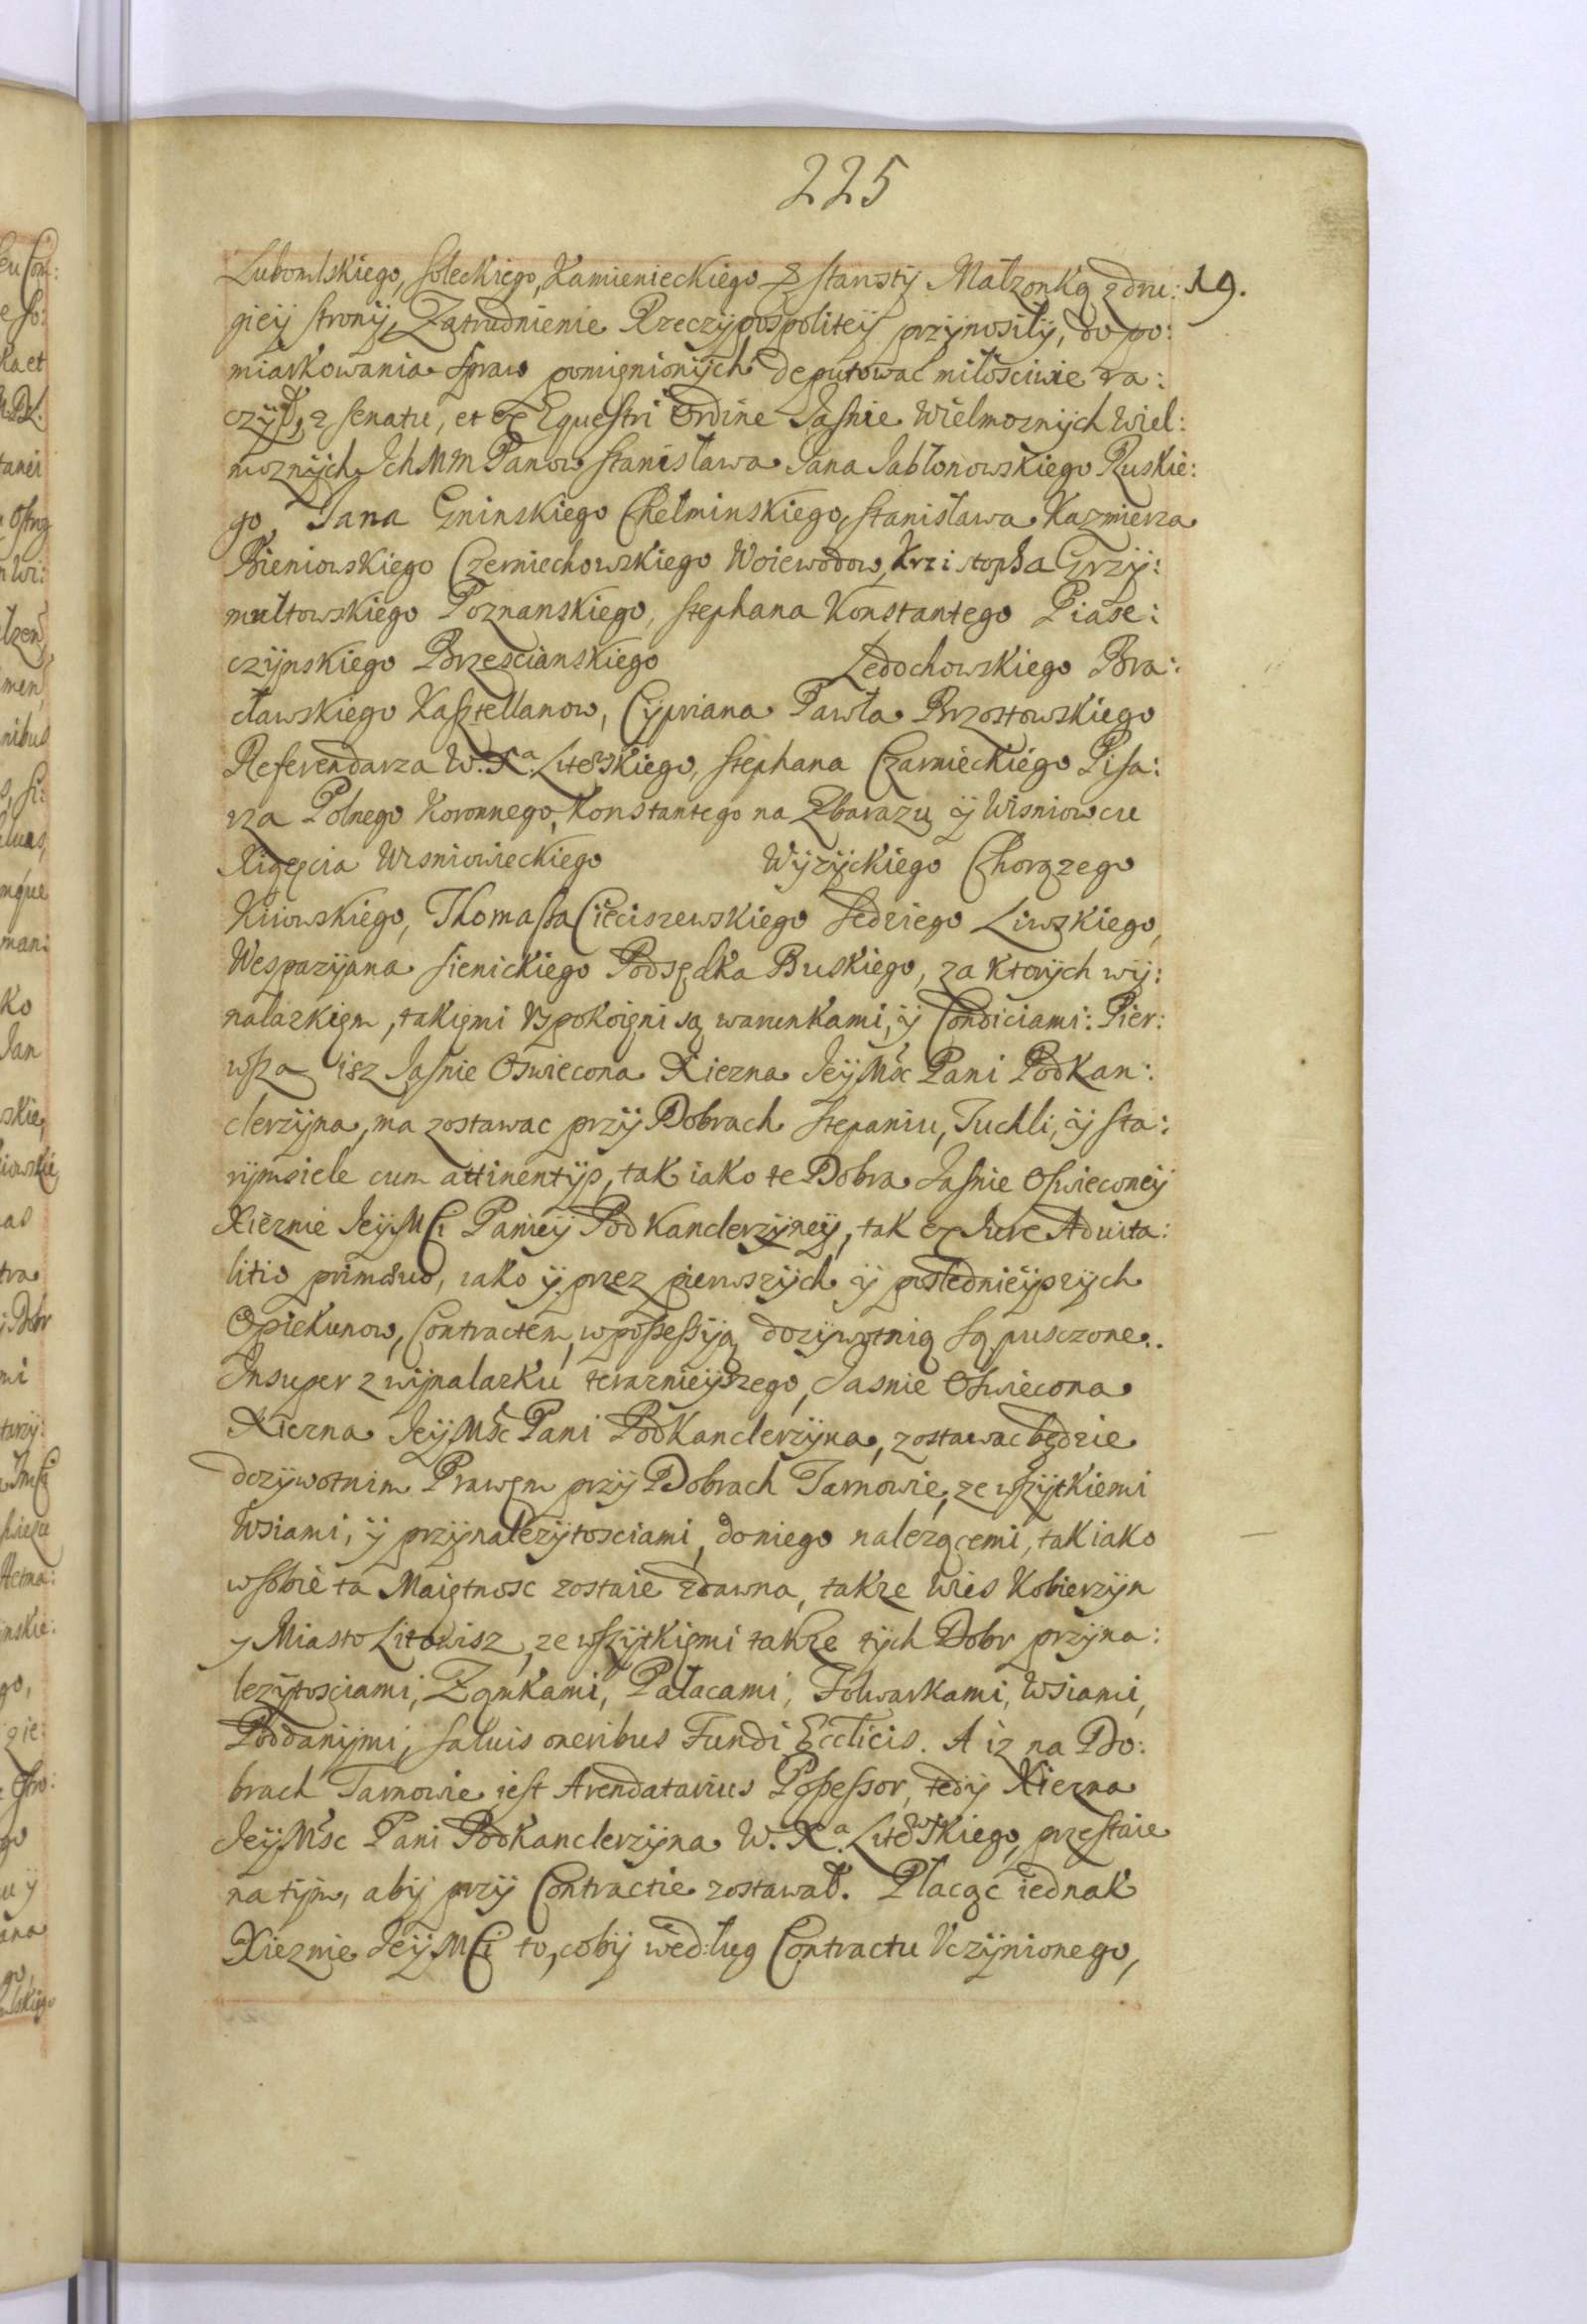 225
Lubomlskiego, Soleckiego, Kamienieckiego & Starosty Małzonką z dru: 19.
gieÿ stronÿ, Zatrudnienie Rzeczÿpospoliteÿ przÿnosiłÿ, do po:
miarkowania spraw pomięnionÿch deputować miłosciwie ra:
czÿł, z Senatu, et ex Equestri Ordine Jasnie Wielmoznÿch Wiel:
moznÿch Ich Mm Panow Stanisława Jana Jabłonowskiego Ruskie:
go, Jana Gninskiego Chełminskiego, Stanisława Kazmierza
Bieniowskiego Czerniechowskiego Woiewodow, Krzistopha Grzÿ:
mułtowskiego Poznanskiego, Stephana Konstantego Piase:
czÿnskiego Brzescianskiego Ledochowskiego Bra:
cławskiego Kasztellanow, Cÿpriana Pawła Brzostowskiego
Referendarza W. Xa. Litewskiego, Stephana Czarnieckiego Pisa:
rza Polnego Koronnego, Konstantego na Zbarazu ÿ Wisniowcu
Xiązęcia Wisniowieckiego Wÿzÿckiego Chorązego
Kiiowskiego, Thomasza Cieciszewskiego Sedziego Liwskiego,
Wespazÿana Sienickiego Podsędka Buskiego, za ktorÿch wÿ:
nalazkięm, takięmi Vspokoięni są warunkami, ÿ Condiciami: Pier:
wsza isz Jasnie Oswiecona Xiezna JeÿMść Pani Podkan:
clerzÿna, ma zostawac przÿ Dobrach Stepaniu, Tuchli, ÿ Sta:
rÿmsiele cum attinentÿs, tak iako te Dobra Jasnie Oswieconeÿ
Xięznie JeÿMCi Panieÿ Podkanclerzÿneÿ, tak ex Iure Aduita:
litio primæuo, iako ÿ przez pierwszÿch ÿ poslednieÿszÿch
Opiekunow, Contractem, w possessiją dozÿwotnią są pusczone.
Insuper z wÿnalazku teraznieÿszego, Jasnie Oswiecona
Xiezna JeÿMść Pani Podkanclerzÿna, zostawac będzie
dozÿwotnim Prawęm przÿ Dobrach Tarnowie, ze wszÿtkiemi
Wsiami, ÿ przÿnalezÿtosciami, do niego nalezącemi, tak iako
w sobie ta Maiętnosc zostaie zdawna, takze Wies Kobierzÿn
y Miasto Litowisz, ze wszÿtkięmi takze tÿch Dobr przÿna:
lezÿtosciami, Zamkami, Pałacami, Folwarkami, Wsiami,
Poddanÿmi, saluis oneribus Fundi Ecclicis. A iz na Do:
brach Tarnowie iest Arendatarius Possessor, tedÿ Xiezna
JeÿMść Pani Podkanclerzÿna W. Xa. Litewskiego, przestaie
na tÿm, abÿ przÿ Contractie zostawał. Płacąc iednak
Xieznie JeÿMCi to, cobÿ według Contractu Vczÿnionego,